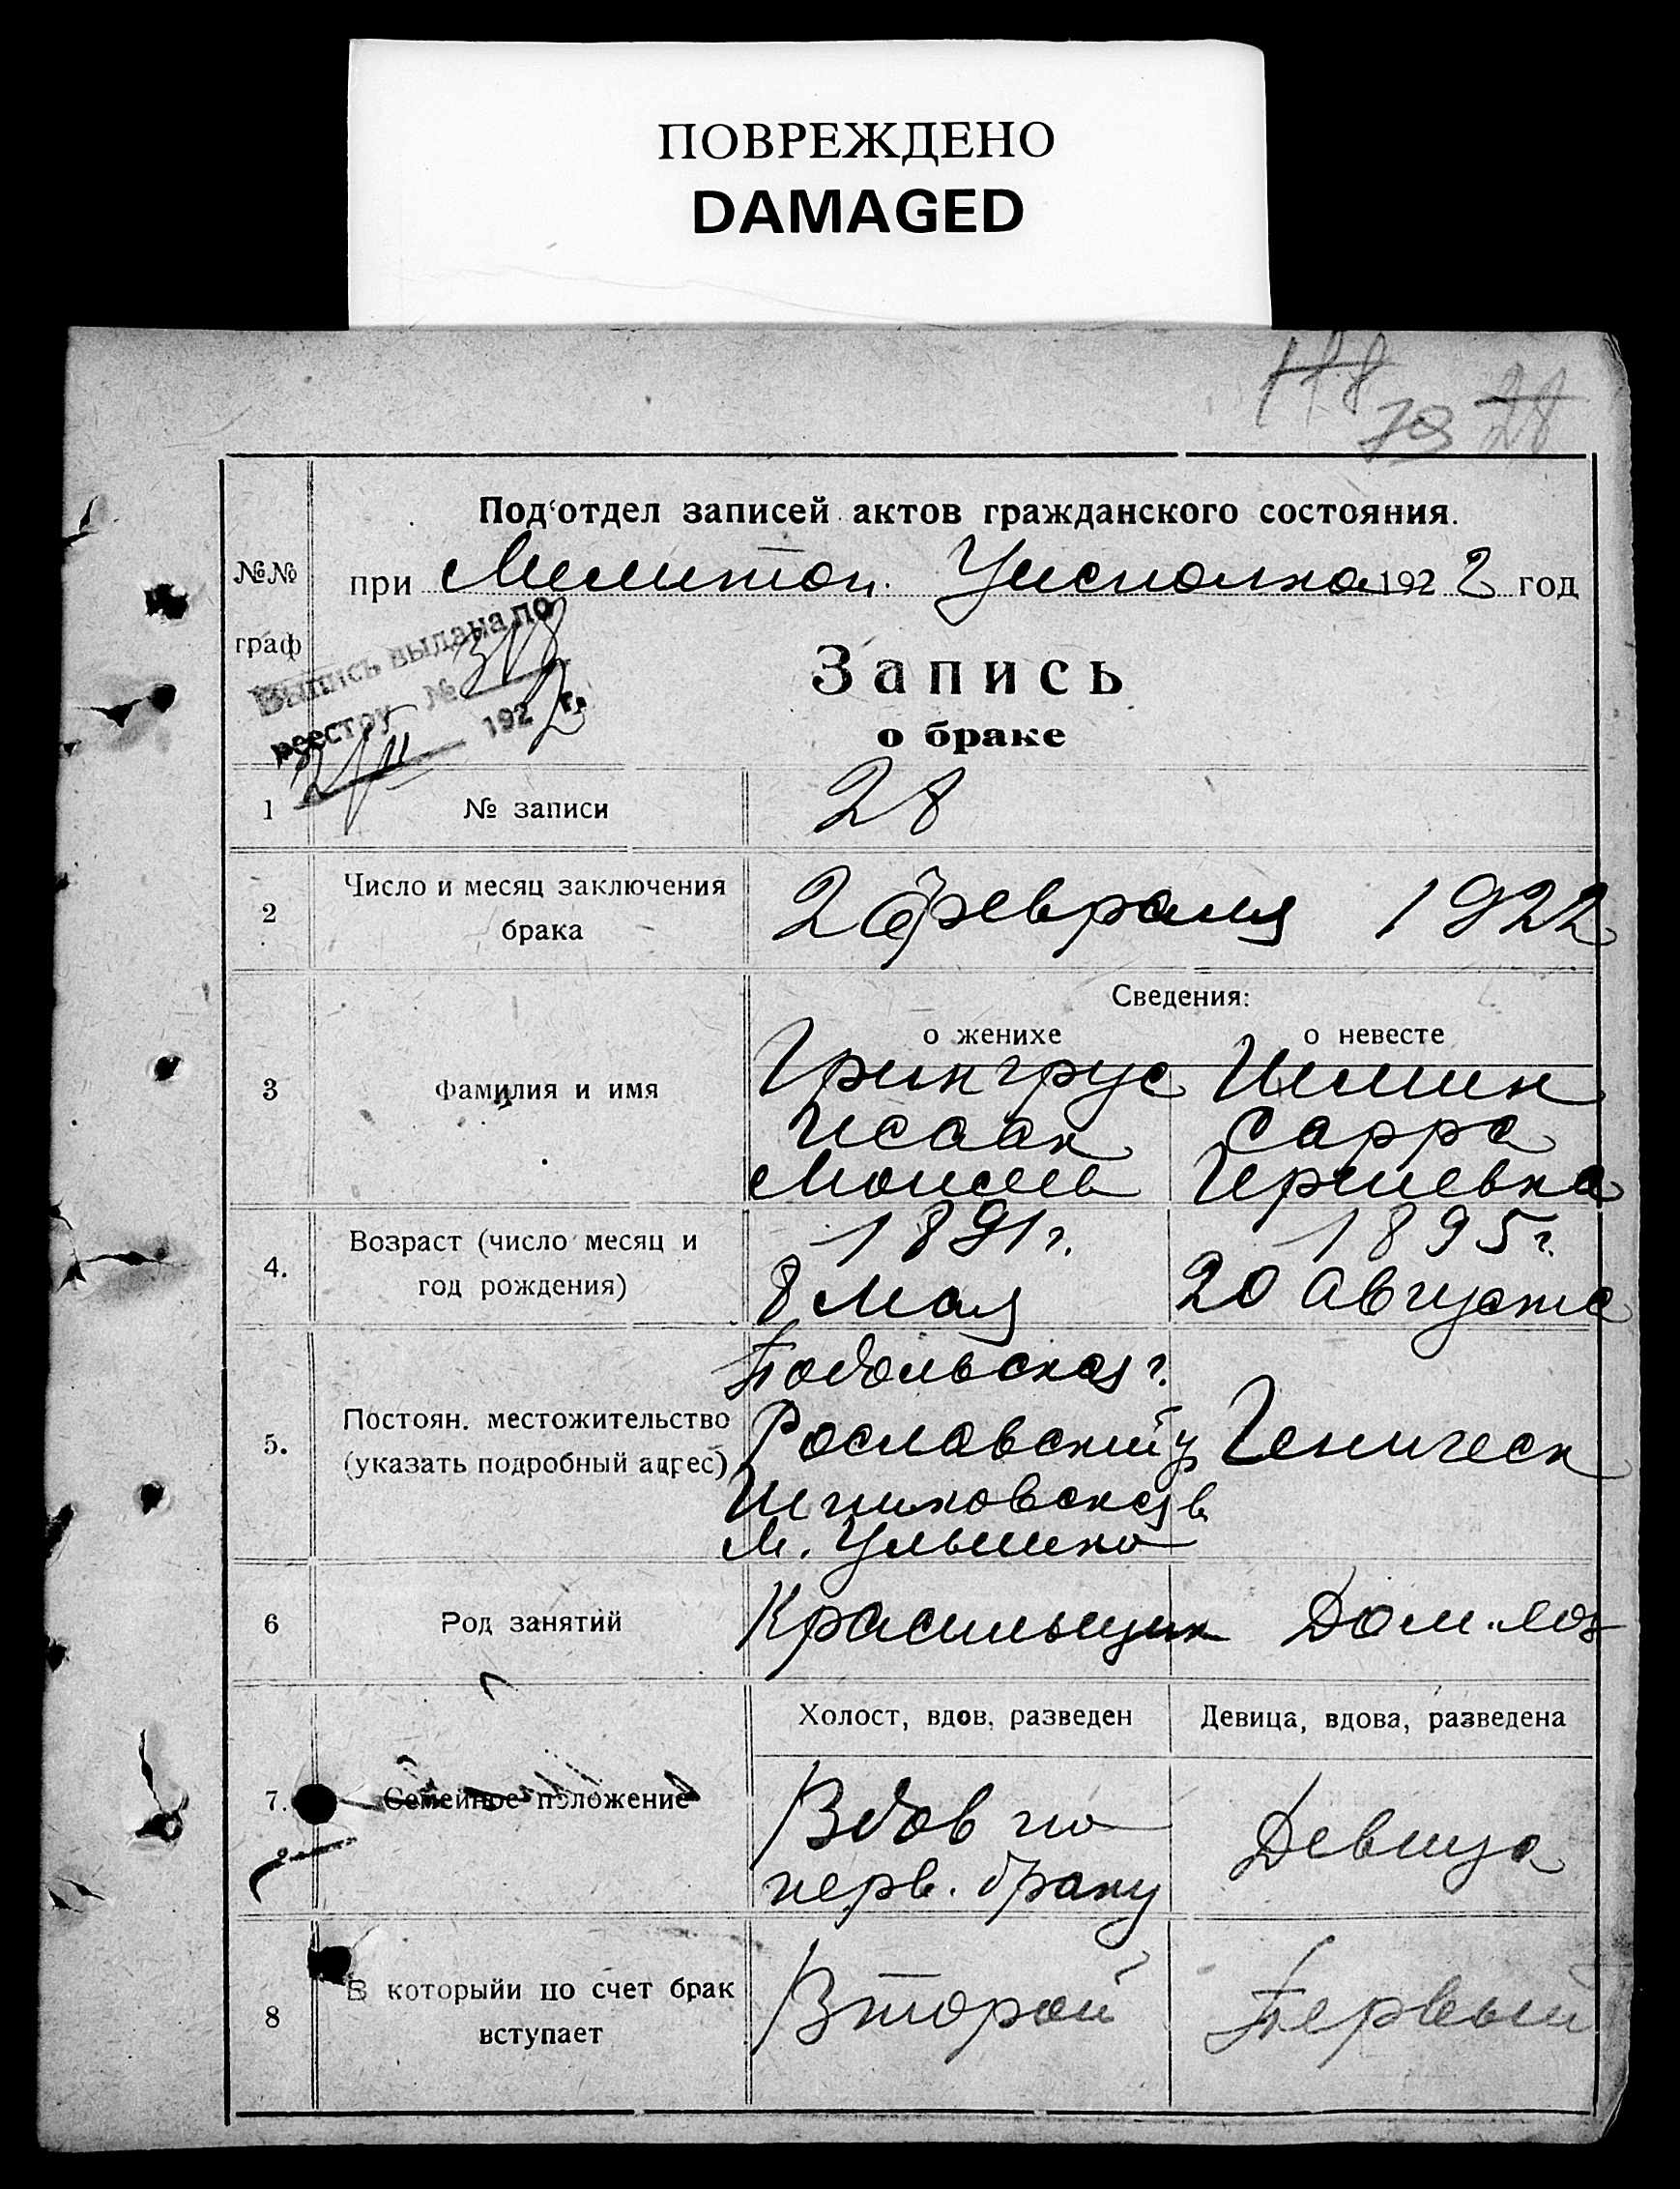 ПОВРЕЖДЕНО
DAMAGED
118
79 28
Под'отдел записей актов гражданского состояния.
№№
граф
при Мелитоп. Уисполкоме 1922 год
Выпись выдана по
реестру № 318
2/II 1922 г.
Запись
о браке
1 № записи 28
2 Число и месяц заключения
брака
2 февраля 1922
Сведения:
о женихе о невесте
3 Фамилия и имя
Грингрус Шлиин
Исаак Сарра
Моисеев Гершевна
4. Возраст (число месяц и
год рождения)
1891 г. 1895 г.
8 Мая 20 Августа
5. Постоян. местожительство
(указать подробный адрес)
Подольская г.
Рославский у Геническ
Шпиковская в.
м. Ульшка
6 Род занятий Красильщик Дом. хоз
Холост, вдов, разведен Девица, вдова, разведена
7. Семейное положение
Вдов по
перв. браку
Девица
8 В которыйи по счет брак
вступает
Второй Первый